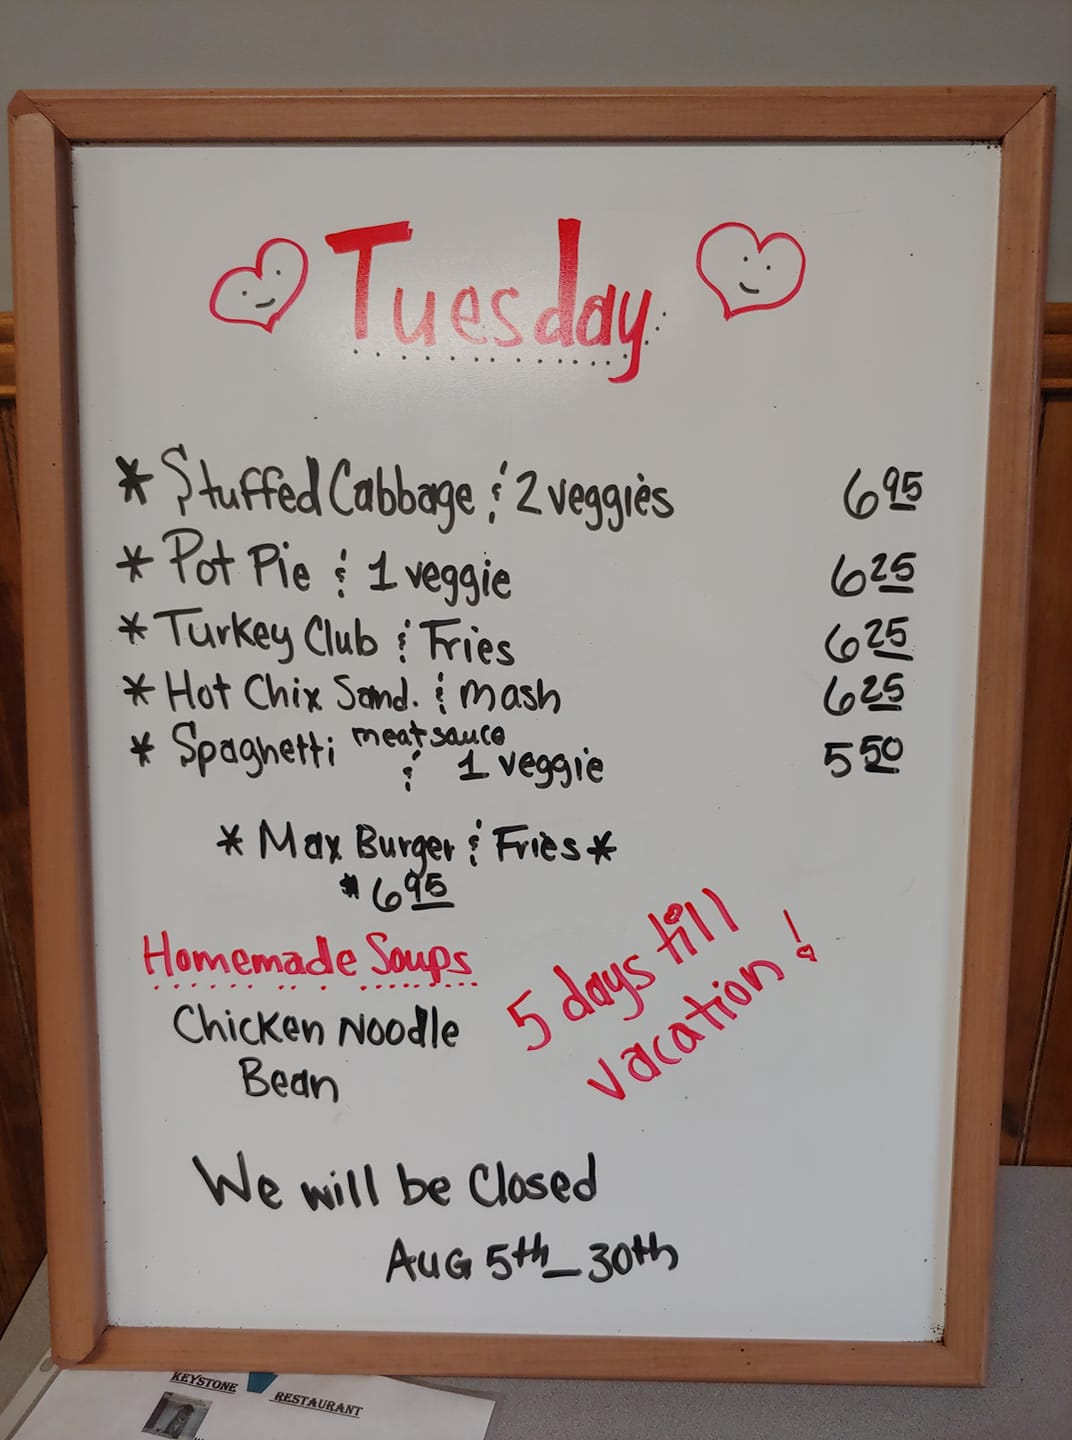 Tuesday
* Stuffed Cabbage & 2 veggies 6.95
* Pot Pie & 1 veggie 6.25
* Turkey Club & Fries 6.25
* Hot Chix Sand. & mash 6.25
* Spaghetti meat sauce
& 1 veggie 5.50
* Max Burger & Fries *
$6.95
Homemade Soups
Chicken Noodle
Bean
5 days till
vacation!
We will be Closed
Aug 5th - 30th
KEYSTONE RESTAURANT